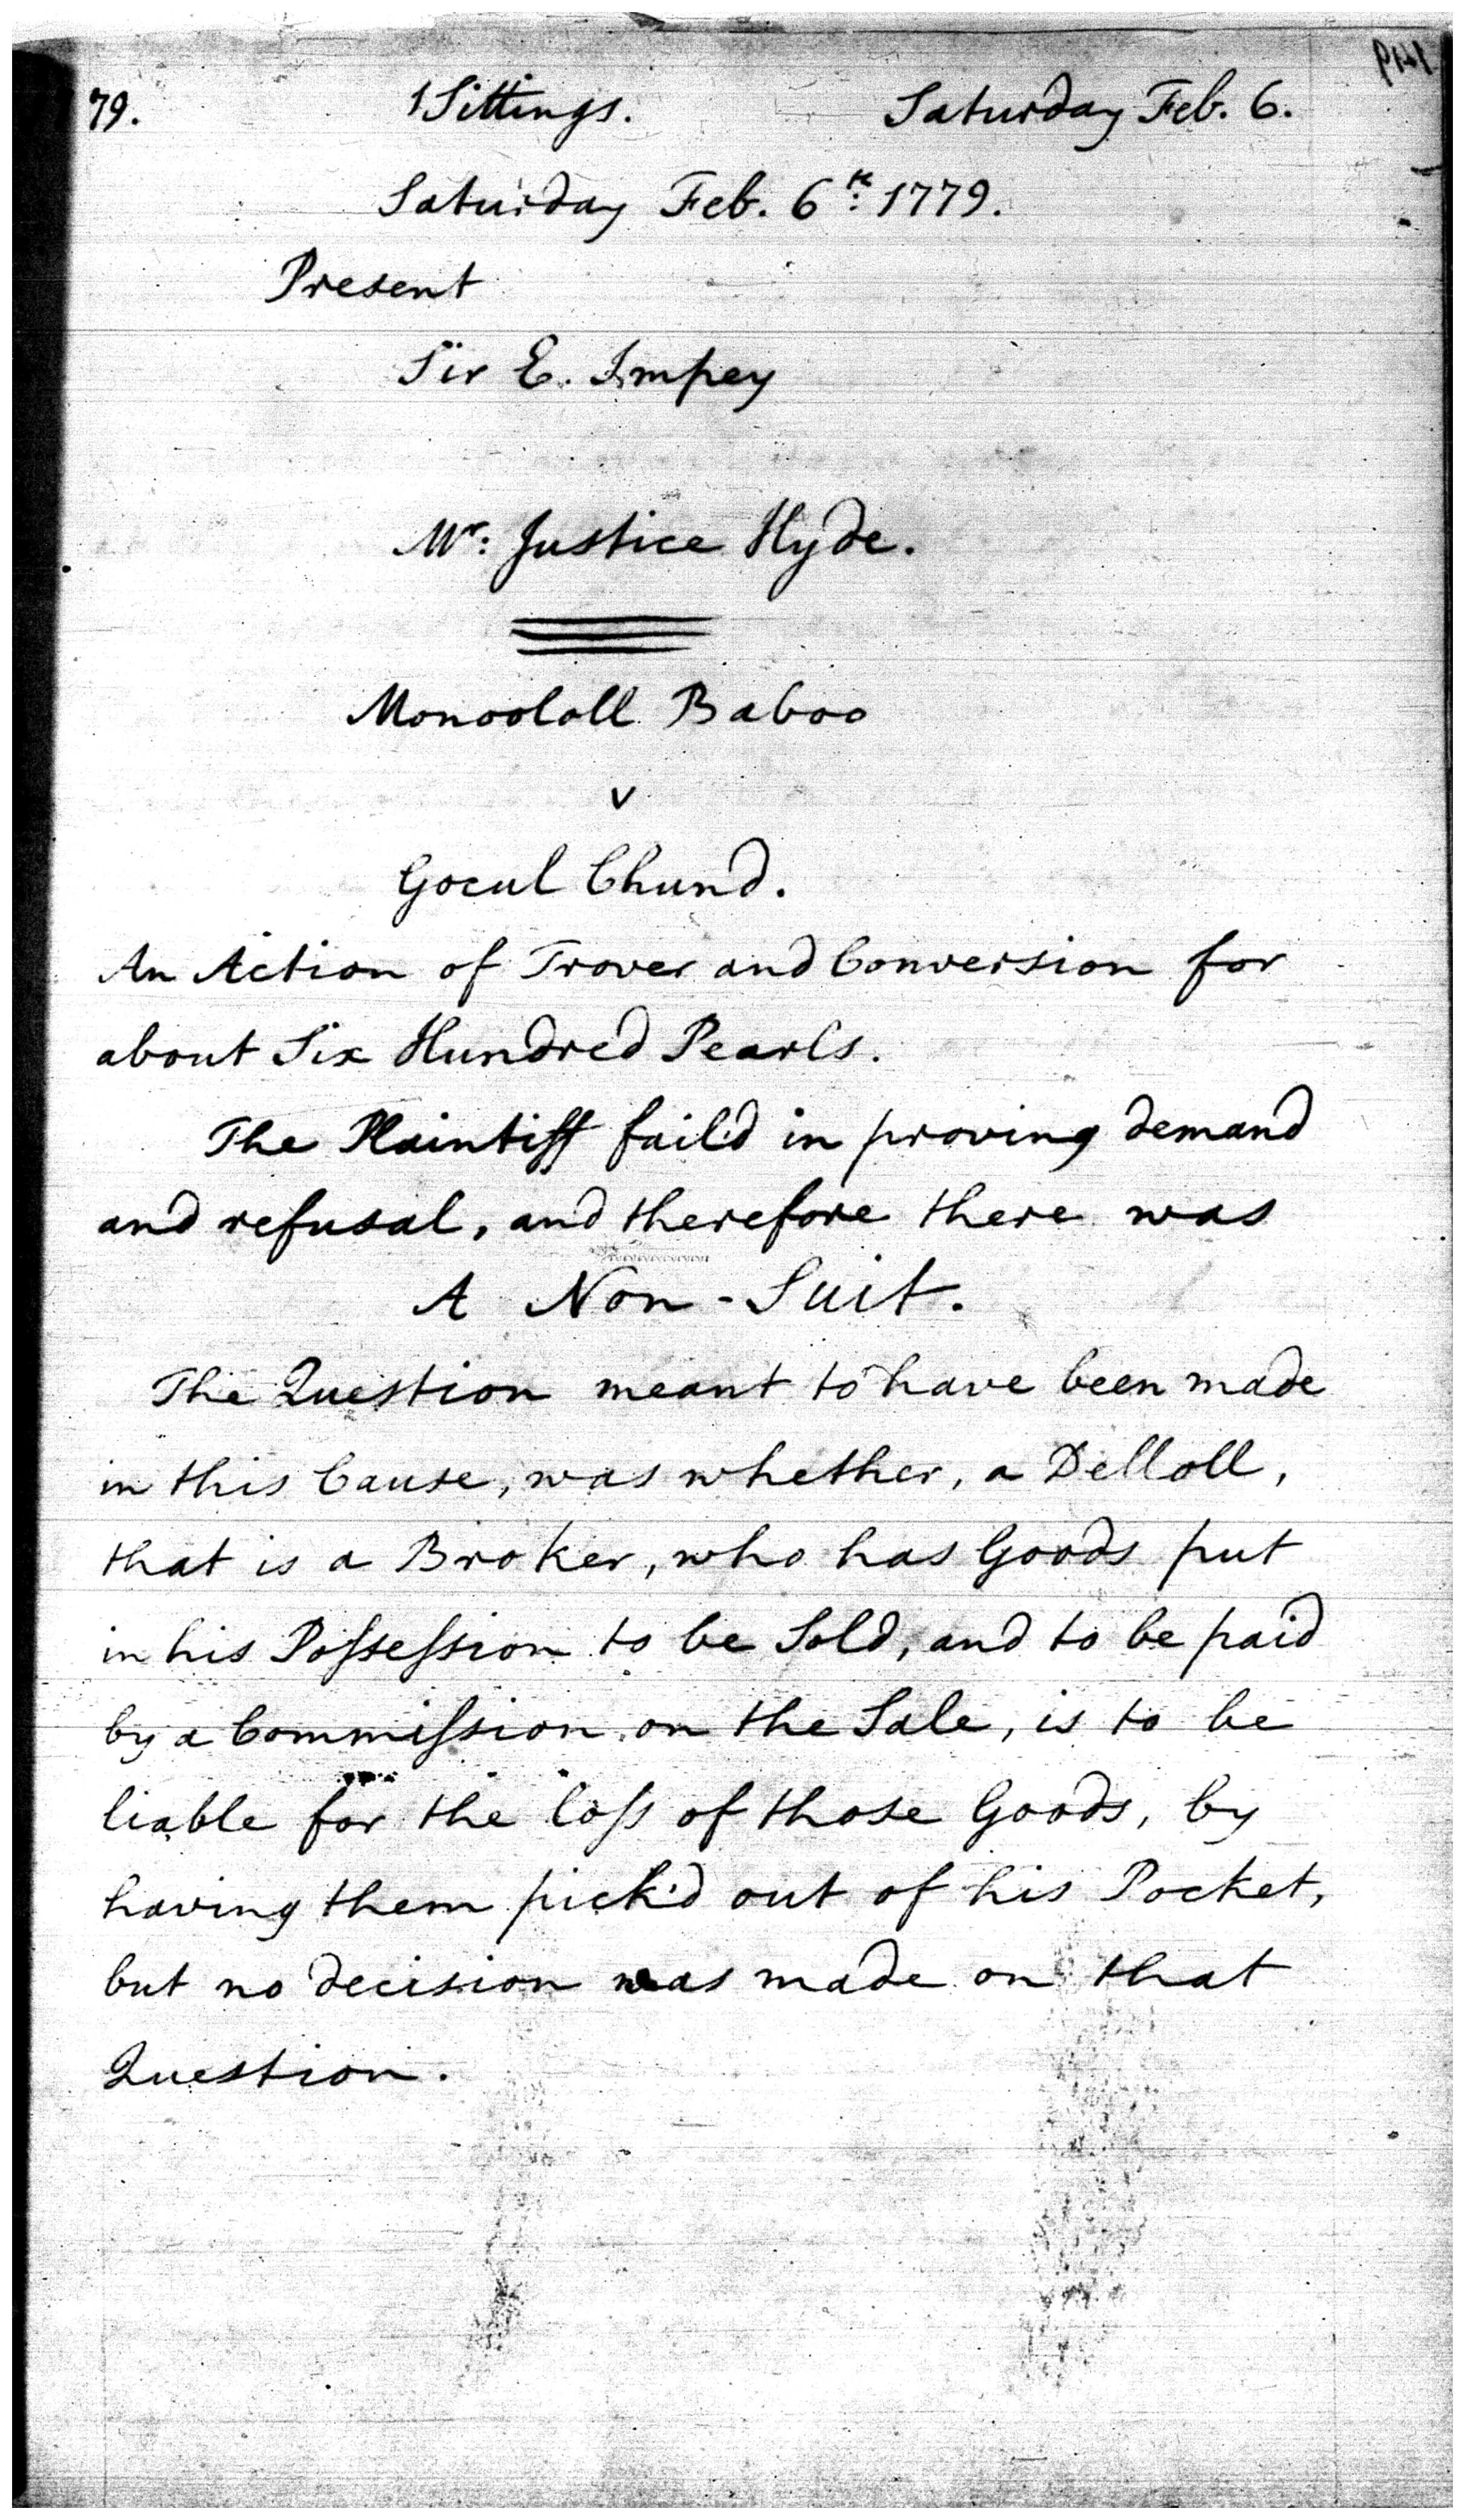 79. 1 Sittings. Saturday Feb. 6.
Saturday Feb. 6th: 1779.
Present
Sir E. Impey
Mr: Justice Hyde.
Monoololl Baboo
v
Gocul Chund.
An Action of Trover and Conversion for
about Six Hundred Pearls.
The Plaintiff fail'd in proving demand
and refusal, and therefore there was
A Non-Suit.
The Question meant to have been made
in this Cause, was whether, a Delloll,
that is a Broker, who has Goods put
in his Poſseſsion to be Sold, and to be paid
by a Commiſsion on the Sale, is to be
liable for the loſs of those Goods, by
having them pick'd out of his Pocket,
but no decision was made on that
Question.